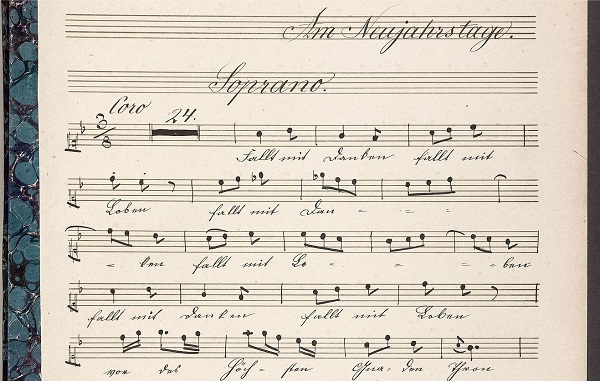 Am Neujahrstage.
Soprano.
Coro 3/8 24.
Fallt mit Danken fallt mit
Loben fallt mit Dan - - -
- ken fallt mit Lo - - - ben
fallt mit Danken fallt mit Loben
vor des Höch - sten Gna - den Thron